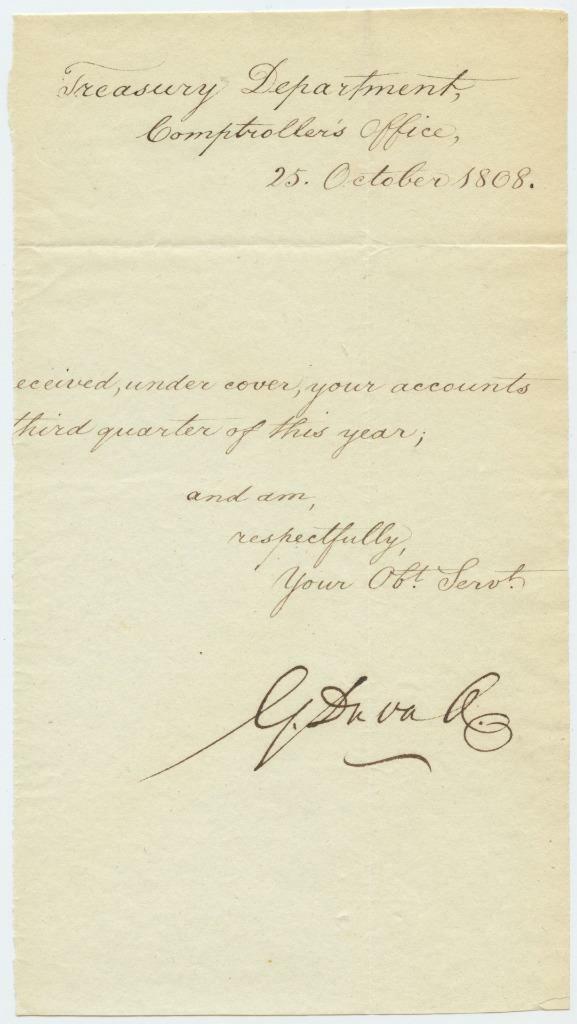 Treasury Department,
Comptroller's Office,
25. October 1808.
eceived, under cover, your accounts
third quarter of this year;
and am,
respectfully,
Your Obt. Servt.
G. Duvall.